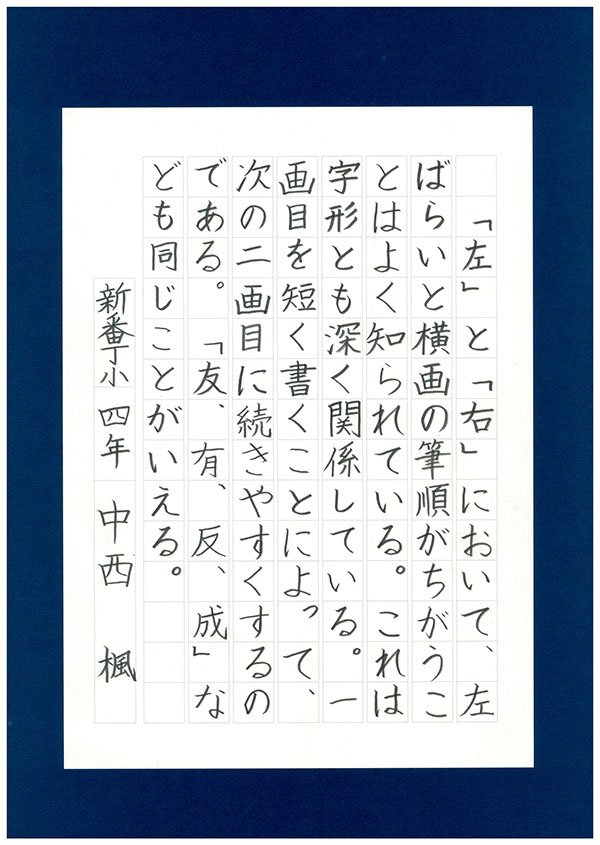 「左」と「右」において、左
ばらいと横画の筆順がちがうこ
とはよく知られている。これは
字形とも深く関係している。一
画目を短く書くことによって、
次の二画目に続きやすくするの
である。「友、有、反、成」な
ども同じことがいえる。
新番丁小 四年 中西 楓